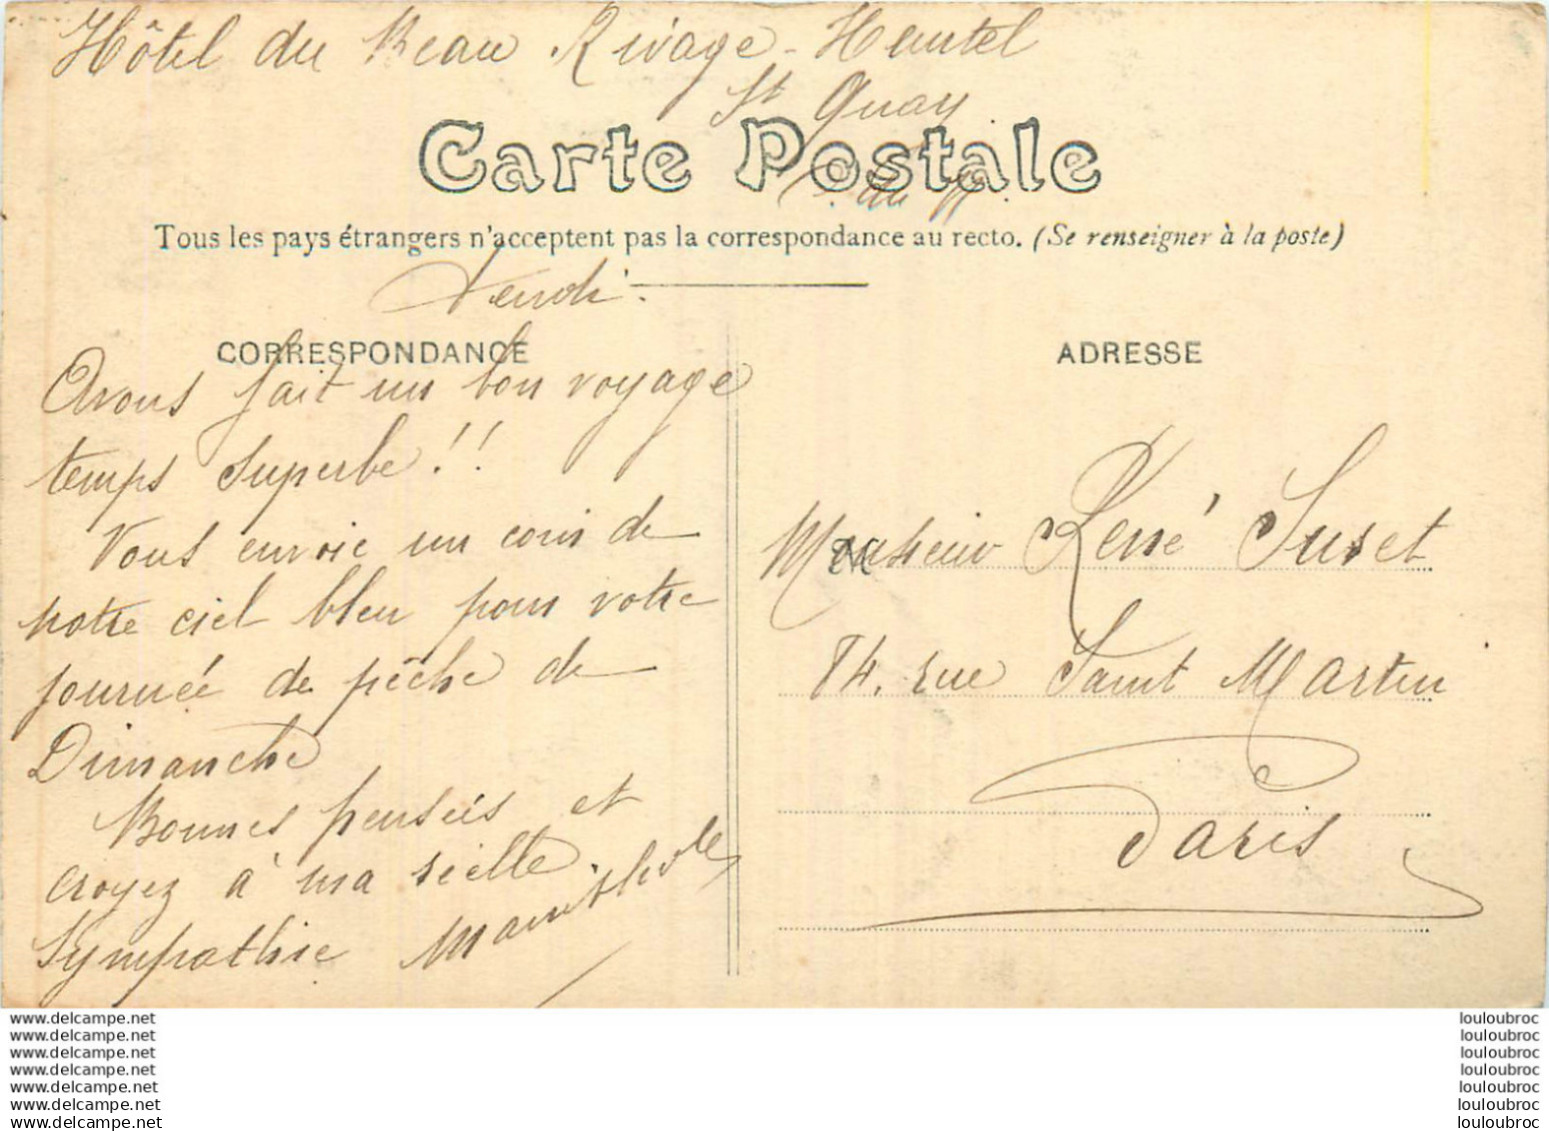 Hôtel du Beau Rivage - Hautel
St Quay
C. du N.
Carte Postale
Tous les pays étrangers n'acceptent pas la correspondance au recto. (Se renseigner à la poste)
Vendi.
CORRESPONDANCE
Avons fait un bon voyage
temps superbe!!
Vous envoie un coin de
notre ciel bleu pour votre
journée de pêche de
Dimanche
Bonnes pensées et
croyez à ma réelle
Sympathie
ADRESSE
Monsieur René Suret
84. rue Saint Martin
Paris
www.delcampe.net
www.delcampe.net
www.delcampe.net
www.delcampe.net
www.delcampe.net
www.delcampe.net
www.delcampe.net
louloubroc
louloubroc
louloubroc
louloubroc
louloubroc
louloubroc
louloubroc